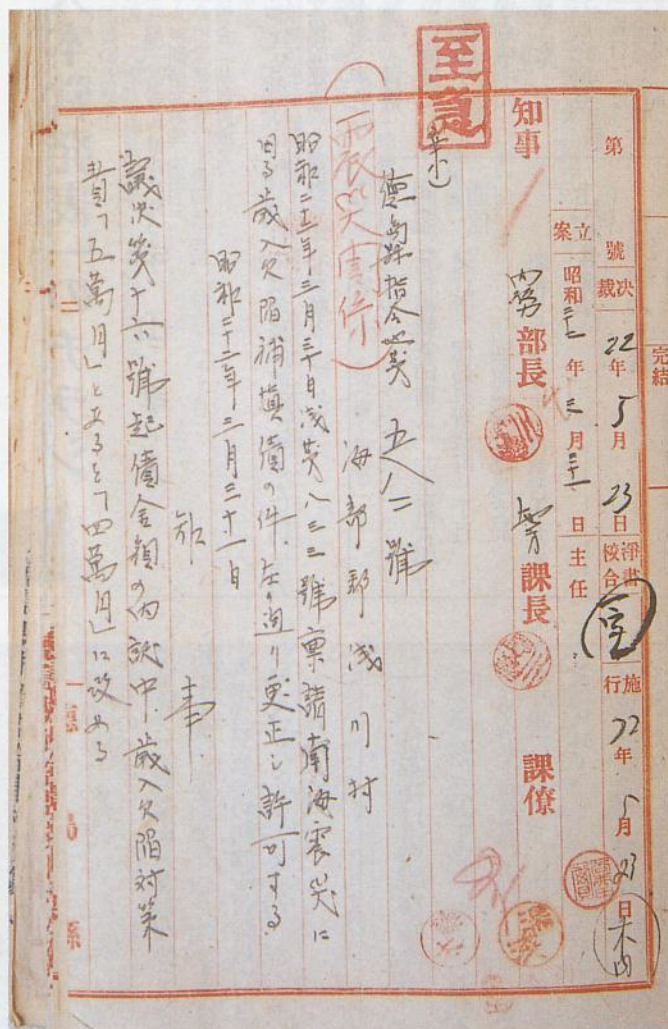 至急
完結
第 號
裁決 22年5月23日
淨書校合
施行 22年5月23日
立案 昭和二十二年三月三十一日
主任
知事
内務部長
課長
課僚
案
徳島県指令地第五八二號
震災関係
海部郡浅川村
昭和二十二年三月三十日浅第八三三號稟請南海震災に
因る歳入欠陥補填債の件、左の通り更正し許可する
昭和二十二年三月三十一日
知事
議決第十六號起債金額の内訳中、歳入欠陥対策
費「五萬円」とあるを「四萬円」に改める
徳島縣